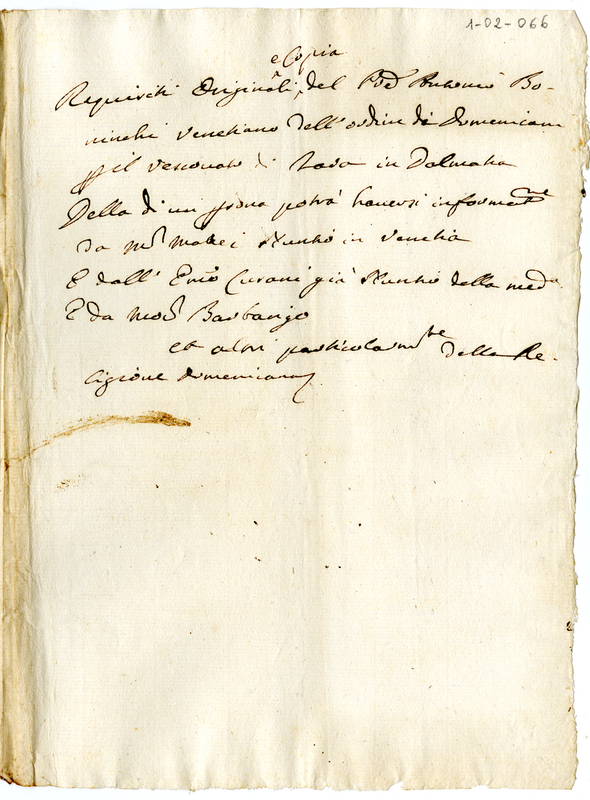 1-02-066
e Copia
Requisiti Originali, del Pre Antonio Bo-
ninchi Venetiano dell'ordine di Domenicani
p il vescovato di in Dalmatia
Della di un psona potrà haversi informatne
da Mr Mattei Nuntio in Venetia
E dall' Emo già Nuntio della meda
E da Mons Barbarigo
et altri particolarmte della Re-
ligione Domenicana